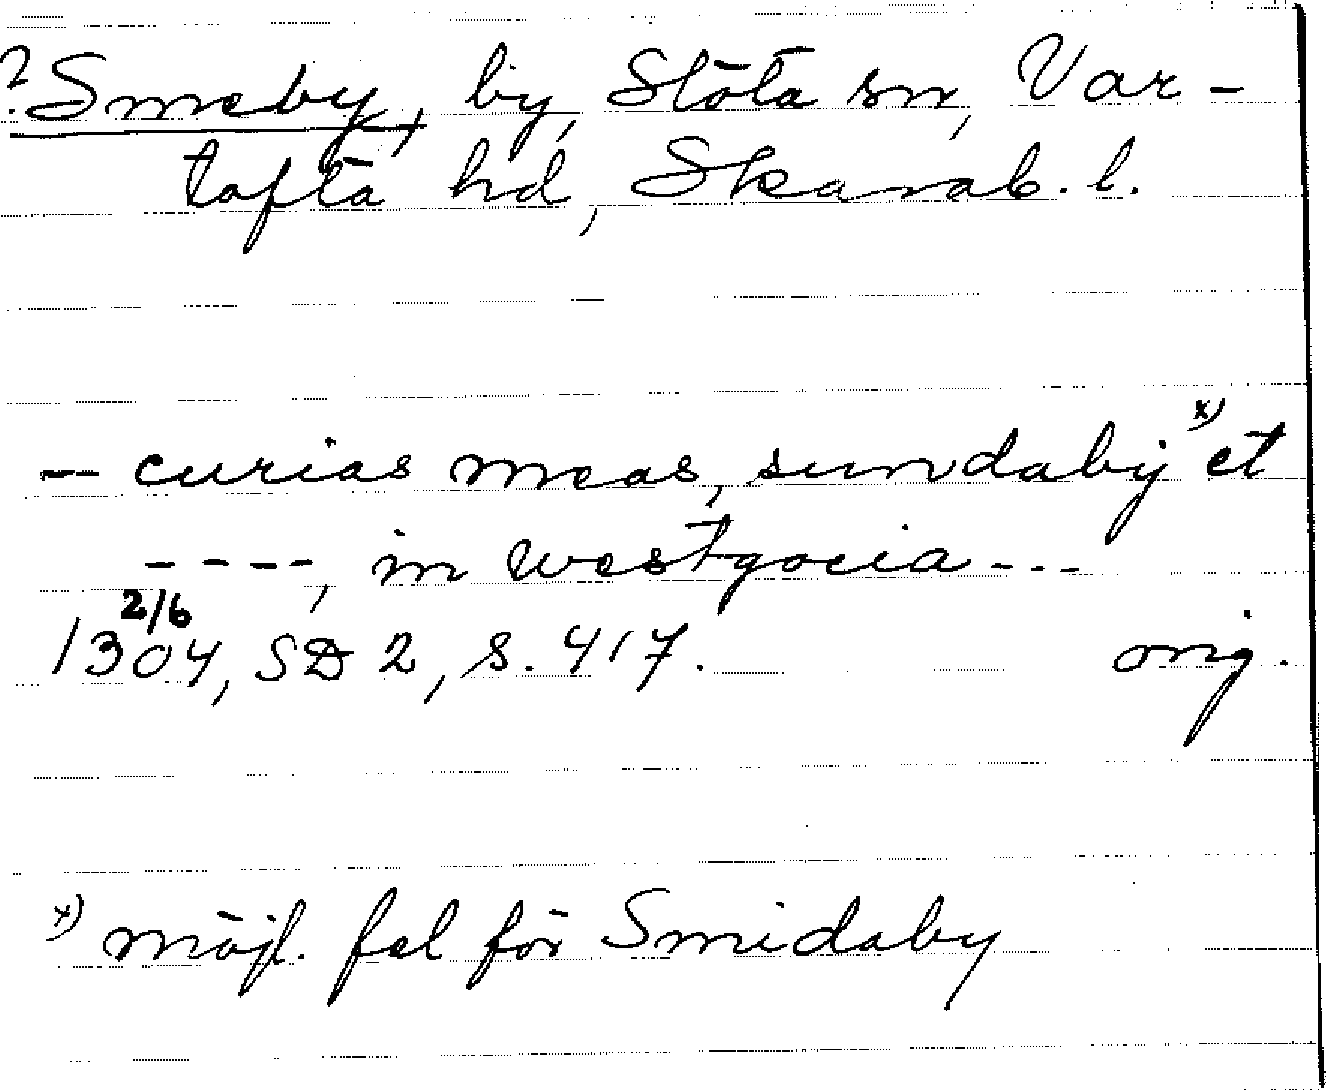 ? Smeby, by, Slöta sn, Var-
tofta hd, Skarab. l.
-- curias meas, sundaby x) et
----, in westgocia ---
1304, 2/6 SD 2, s. 417. orig.
x) möjl. fel för Smidaby